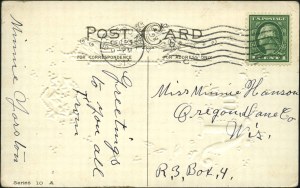 POST CARD
FOR CORRESPONDENCE
FOR ADDRESS ONLY
Greetings
to you all
From
Minnie Yorston
Miss Minnie Hanson
Oregon Dane Co
Wis.
R3, Box, 4.
Series 10 A